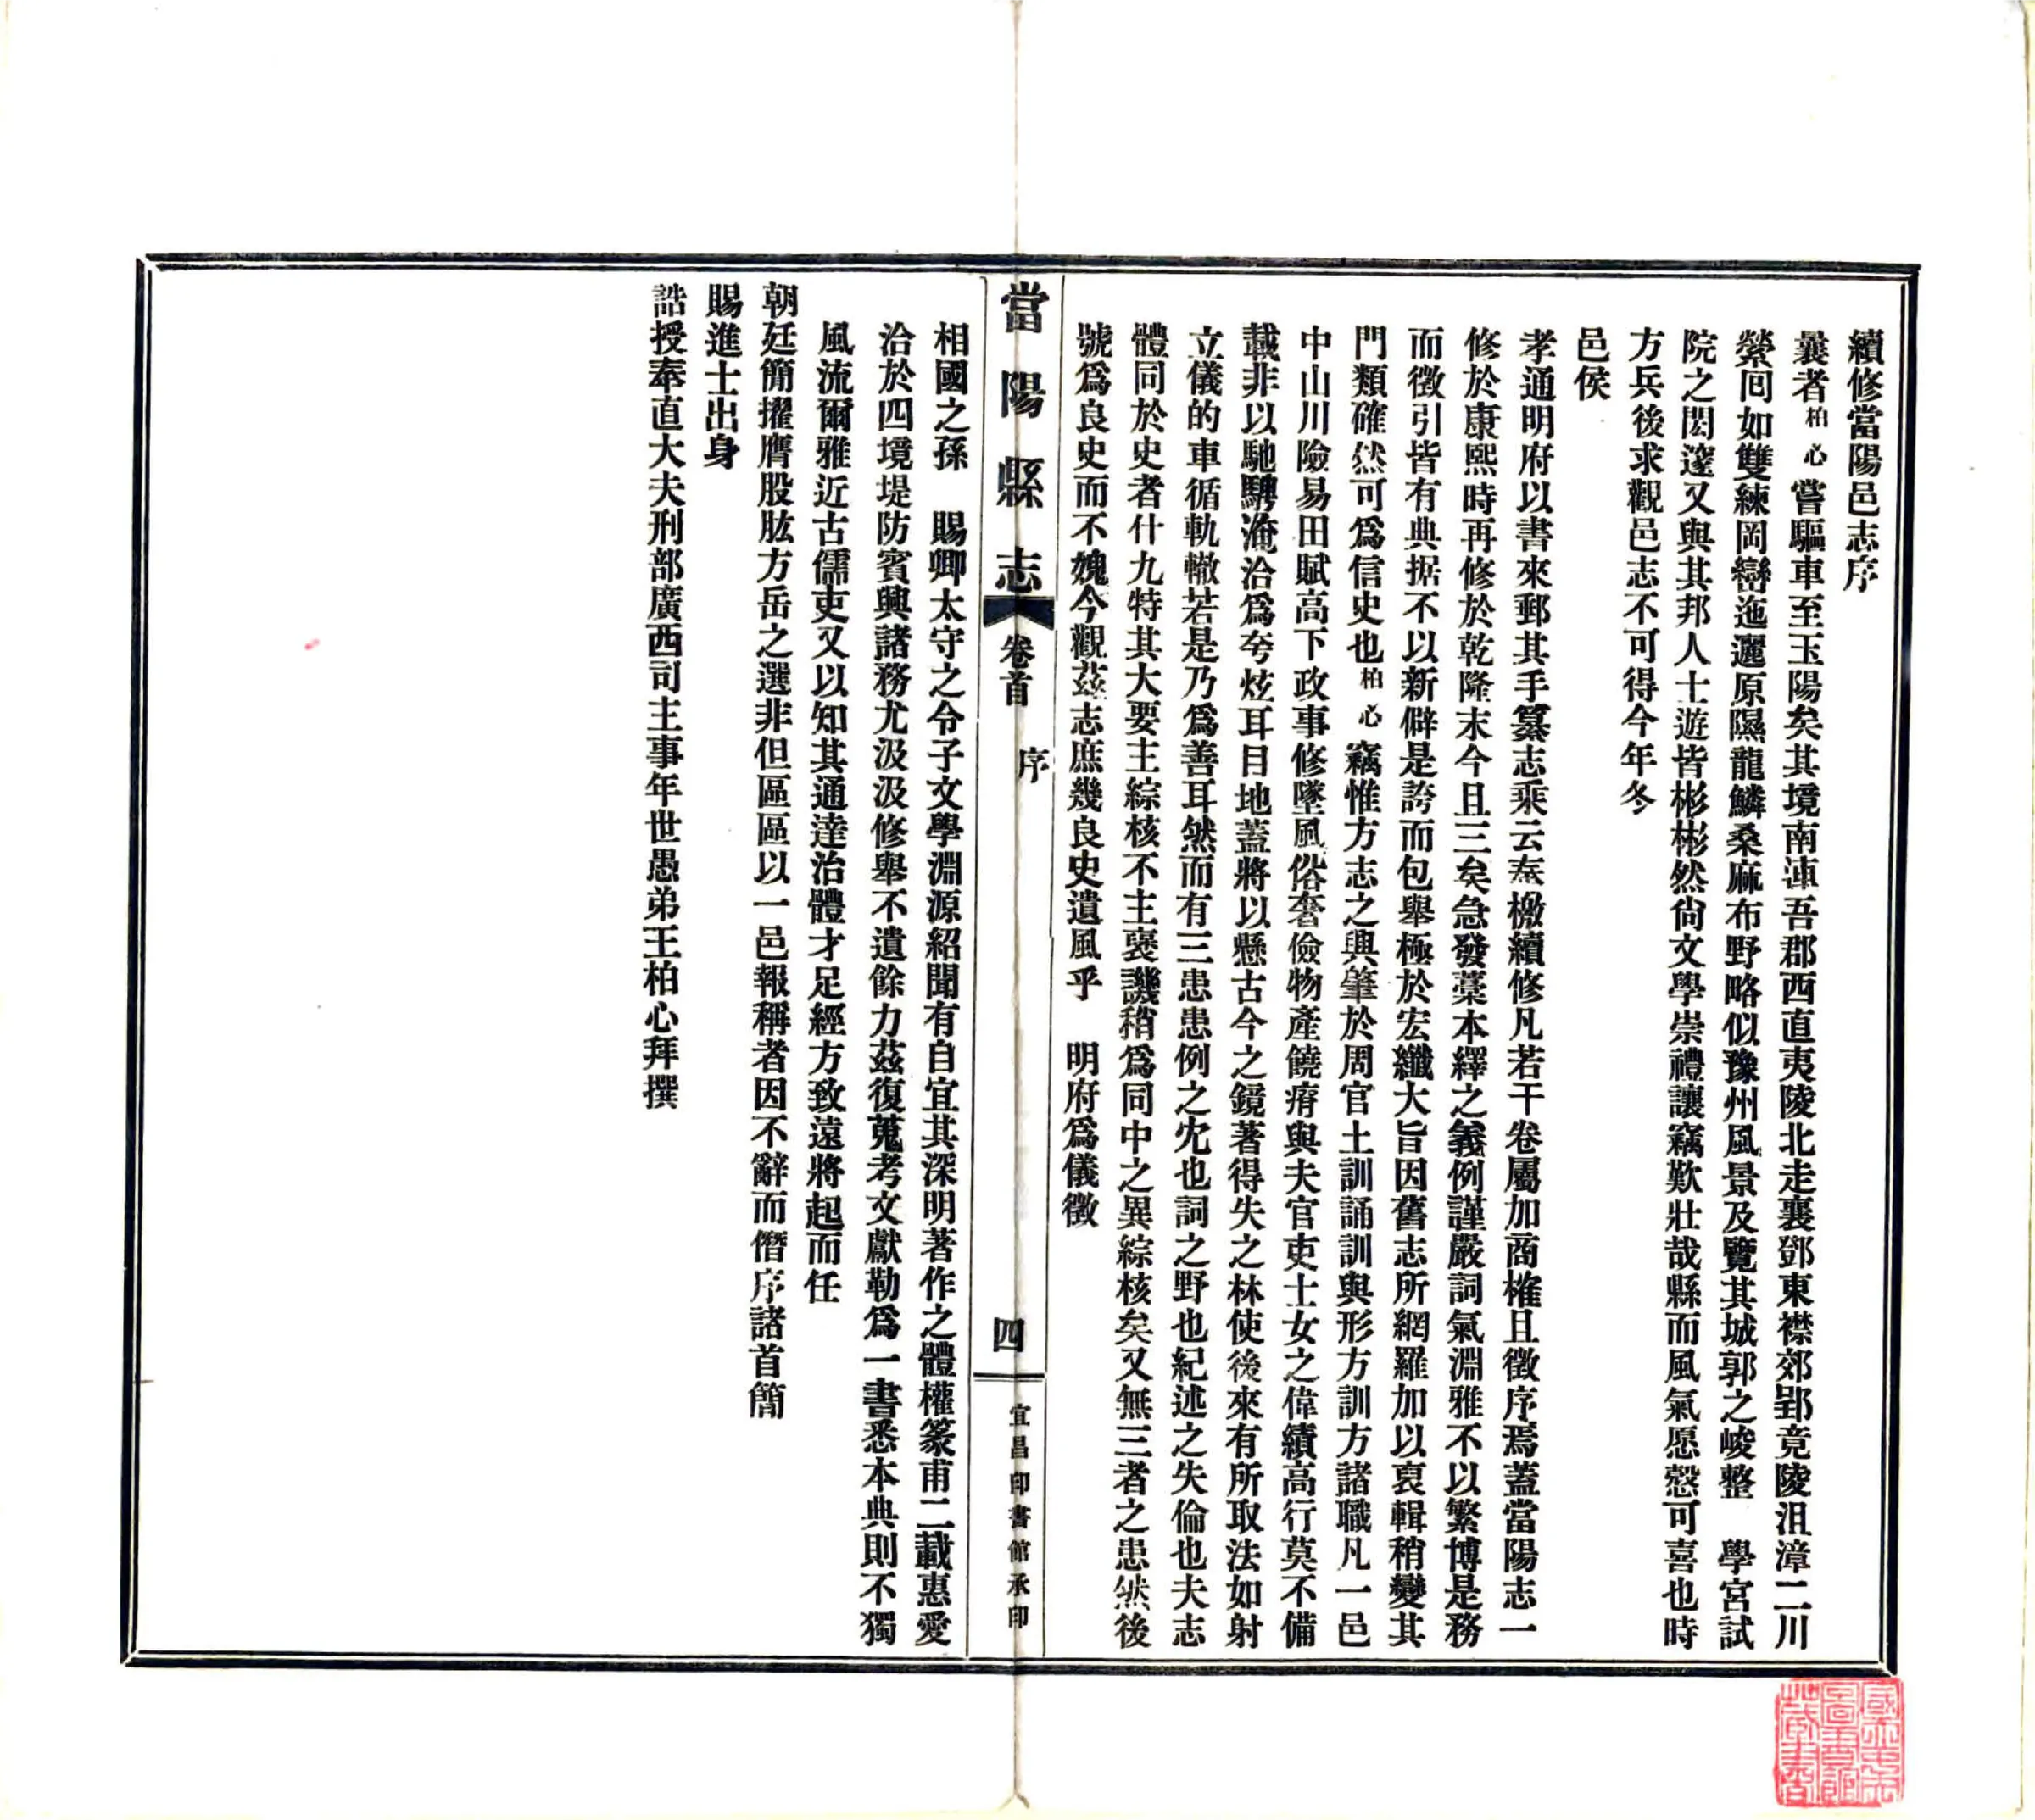 續修當陽邑志序
曩者柏心嘗驅車至玉陽矣其境南連吾郡西直夷陵北走襄鄧東襟郊郢竟陵沮漳二川
縈囘如雙練岡巒迤邐原隰龍鱗桑麻布野略似豫州風景及覽其城郭之峻整 學宮試
院之閎邃又與其邦人士遊皆彬彬然尙文學崇禮讓竊歎壯哉縣而風氣愿慤可喜也時
方兵後求觀邑志不可得今年冬
邑侯
孝通明府以書來郵其手纂志乘云奉檄續修凡若干卷屬加商榷且徵序焉蓋當陽志一
修於康熙時再修於乾隆末今且三矣急發藁本繹之義例謹嚴詞氣淵雅不以繁博是務
而徵引皆有典据不以新僻是誇而包舉極於宏纖大旨因舊志所網羅加以裒輯稍變其
門類確然可爲信史也柏心竊惟方志之興肇於周官土訓誦訓與形方訓方諸職凡一邑
中山川險易田賦高下政事修墜風俗奢儉物產饒瘠與夫官吏士女之偉績高行莫不備
載非以馳騁淹洽爲夸炫耳目地蓋將以懸古今之鏡著得失之林使後來有所取法如射
立儀的車循軌轍若是乃爲善耳然而有三患患例之宂也詞之野也紀述之失倫也夫志
體同於史者什九特其大要主綜核不主襃譏稍爲同中之異綜核矣又無三者之患然後
號爲良史而不媿今觀茲志庶幾良史遺風乎 明府爲儀徵
當陽縣志
卷首 序
四
宜昌印書館承印
相國之孫 賜卿太守之令子文學淵源紹聞有自宜其深明著作之體權篆甫二載惠愛
洽於四境堤防賓興諸務尤汲汲修舉不遺餘力茲復蒐考文獻勒爲一書悉本典則不獨
風流爾雅近古儒吏又以知其通達治體才足經方致遠將起而任
朝廷簡擢膺股肱方岳之選非但區區以一邑報稱者因不辭而僭序諸首簡
賜進士出身
誥授奉直大夫刑部廣西司主事年世愚弟王柏心拜撰